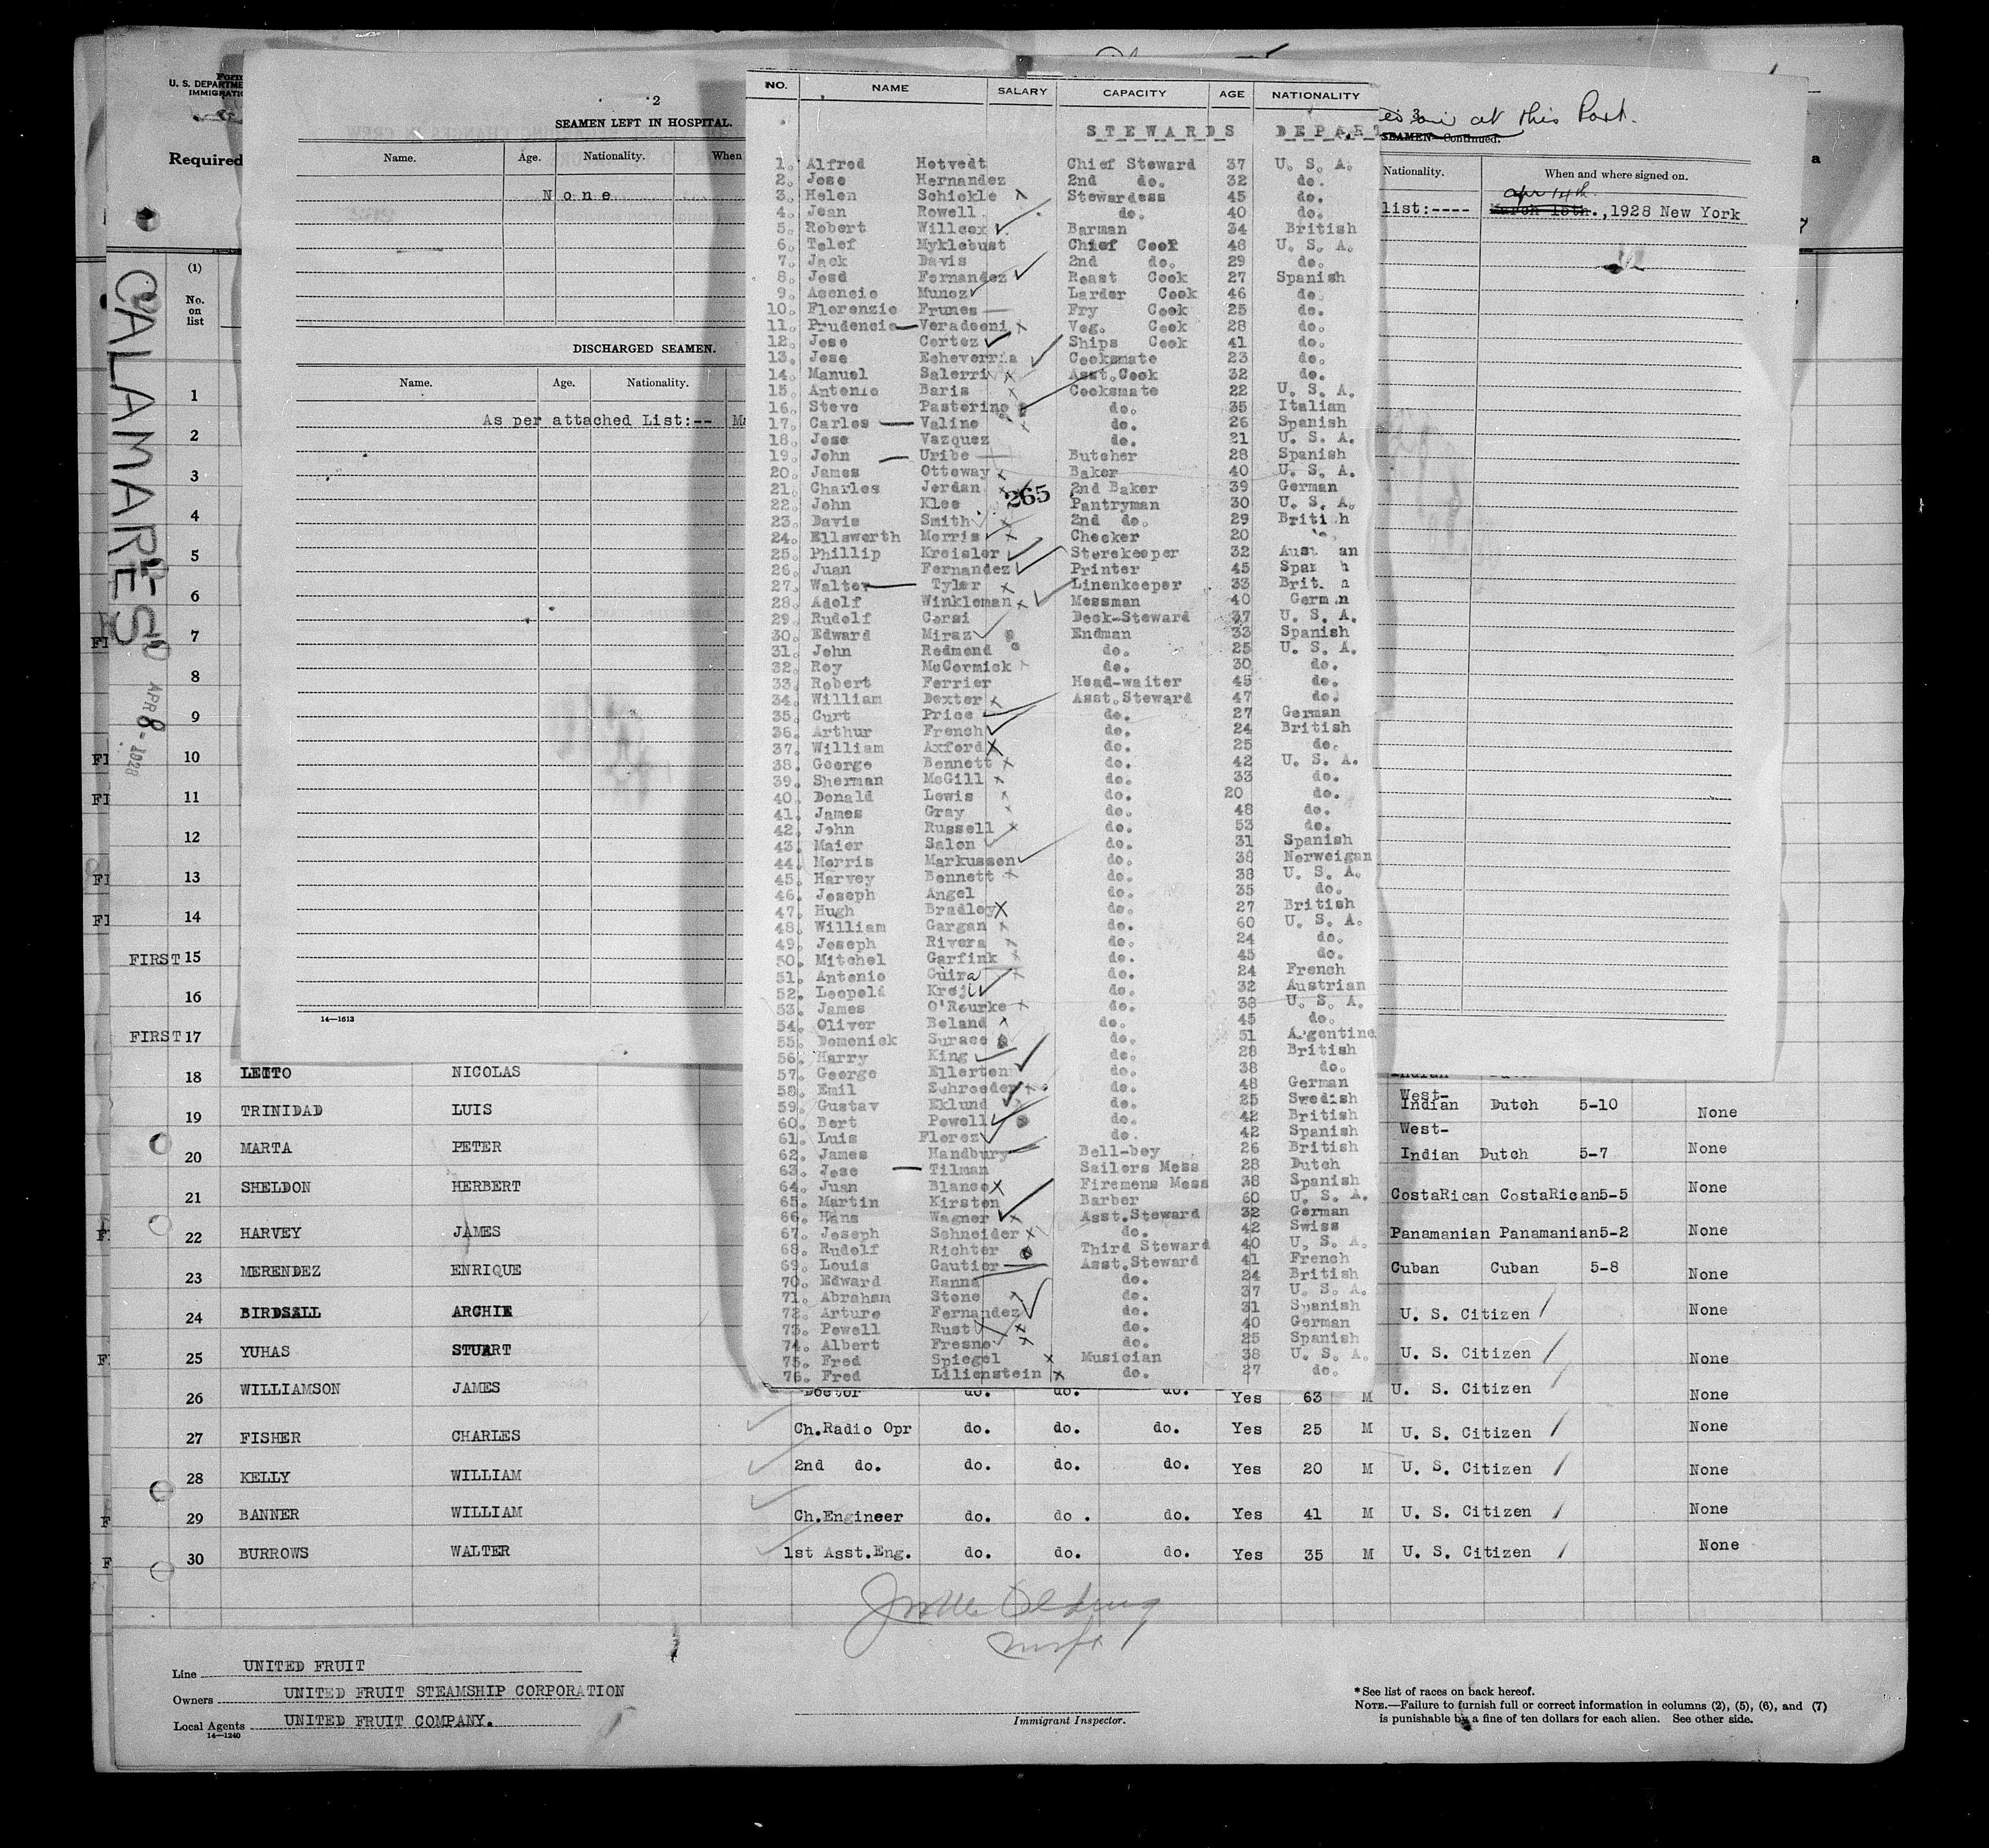 Form
U. S. DEPARTME
IMMIGRATIO
Required
CALAMARES
APR 8 - 1928
(1)
No. on list
2
SEAMEN LEFT IN HOSPITAL.
Name. Age. Nationality. When
None
DISCHARGED SEAMEN.
Name. Age. Nationality.
As per attached List:--
14—1613
at this Port.
SEAMEN—Continued.
Nationality. When and where signed on.
apr 14th
list:---- March 15th.,1928 New York
NO. NAME SALARY CAPACITY AGE NATIONALITY
STEWARDS DEPART
1. Alfred Hetvedt Chief Steward 37 U. S. A.
2. Jose Hernandez 2nd do. 32 do.
3. Helen Schickle Stewardess 45 do.
4. Jean Rowell do. 40 do.
5. Robert Willcox Barman 34 British
6. Telef Myklebust Chief Cook 48 U. S. A.
7. Jack Davis 2nd do. 29 do.
8. Josd Fernandez Roast Cook 27 Spanish
9. Asencio Munoz Larder Cook 46 do.
10. Florenzio Frunes Fry Cook 25 do.
11. Prudencio Veradeeni Veg. Cook 28 do.
12. Jose Cortez Ships Cook 41 do.
13. Jose Echeverria Cooksmate 23 do.
14. Manuel Salerri Asst.Cook 32 do.
15. Antonio Baris Cooksmate 22 U. S. A.
16. Steve Pastorino do. 35 Italian
17. Carlos Valino do. 26 Spanish
18. Jose Vazquez do. 21 U. S. A.
19. John Uribe Butcher 28 Spanish
20. James Ottoway Baker 40 U. S. A.
21. Charles Jordan 2nd Baker 39 German
265
22. John Klee Pantryman 30 U. S. A.
23. Davis Smith 2nd do. 29 Briti h
24. Ellsworth Morris Checker 20
25. Phillip Kreisler Storekeeper 32 Aust an
26. Juan Fernandez Printer 45 Span h
27. Walter Tyler Linenkeeper 33 Brit. h
28. Adolf Winkleman Messman 40 Germ n
29. Rudolf Corsi Deck-Steward 37 U. S. A.
30. Edward Miraz Endman 33 Spanish
31. John Redmond do. 25 U. S. A.
32. Roy McCormick do. 30 do.
33. Robert Ferrier Head-waiter 45 do.
34. William Dexter Asst.Steward 47 do.
35. Curt Price do. 27 German
36. Arthur French do. 24 British
37. William Axford do. 25 do.
38. George Bennett do. 42 U. S. A.
39. Sherman McGill do. 33 do.
40. Donald Lewis do. 20 do.
41. James Gray do. 48 do.
42. John Russell do. 53 do.
43. Maier Salon do. 31 Spanish
44. Morris Markussen do. 38 Norweigan
45. Harvey Bennett do. 38 U. S. A.
46. Joseph Angel do. 35 do.
47. Hugh Bradley do. 27 British
48. William Gargan do. 60 U. S. A.
49. Joseph Rivera do. 24 do.
50. Mitchel Garfink do. 45 do.
51. Antonio Guira do. 24 French
52. Leopold Kreji do. 32 Austrian
53. James O'Rourke do. 38 U. S. A.
54. Oliver Boland do. 45 do.
55. Domenick Surace do. 51 Argentine
56. Harry King do. 28 British
57. George Ellerton do. 38 do.
58. Emil Schroeder do. 48 German
59. Gustav Eklund do. 25 Swedish
60. Bert Powell do. 42 British
61. Luis Florez do. 42 Spanish
62. James Handbury Bell-boy 26 British
63. Jose Tilman Sailors Mess 28 Dutch
64. Juan Blanco Firemens Mess 38 Spanish
65. Martin Kirsten Barber 60 U. S. A.
66. Hans Wagner Asst.Steward 32 German
67. Joseph Schneider do. 42 Swiss
68. Rudolf Richter Third Steward 40 U. S. A.
69. Louis Gautier Asst.Steward 41 French
70. Edward Hanna do. 24 British
71. Abraham Stone do. 37 U. S. A.
72. Arturo Fernandez do. 31 Spanish
73. Powell Rust do. 40 German
74. Albert Fresno do. 25 Spanish
75. Fred Spiegel Musician 38 U. S. A.
76. Fred Lilienstein do. 27 do.
1
2
3
4
5
6
7
8
9
10
11
12
13
14
FIRST 15
16
FIRST 17
18 LEITO NICOLAS
19 TRINIDAD LUIS West-Indian Dutch 5-10 None
20 MARTA PETER West-Indian Dutch 5-7 None
21 SHELDON HERBERT CostaRican CostaRican5-5 None
22 HARVEY JAMES Panamanian Panamanian5-2 None
23 MERENDEZ ENRIQUE Cuban Cuban 5-8 None
24 BIRDSALL ARCHIE U. S. Citizen None
25 YUHAS STUART U. S. Citizen None
26 WILLIAMSON JAMES Doctor do. do. do. Yes 63 M U. S. Citizen None
27 FISHER CHARLES Ch.Radio Opr do. do. do. Yes 25 M U. S. Citizen None
28 KELLY WILLIAM 2nd do. do. do. do. Yes 20 M U. S. Citizen None
29 BANNER WILLIAM Ch.Engineer do. do. do. Yes 41 M U. S. Citizen None
30 BURROWS WALTER 1st Asst.Eng. do. do. do. Yes 35 M U. S. Citizen None
Line UNITED FRUIT
Owners UNITED FRUIT STEAMSHIP CORPORATION
Local Agents UNITED FRUIT COMPANY.
14—1240
Immigrant Inspector.
*See list of races on back hereof.
NOTE.—Failure to furnish full or correct information in columns (2), (5), (6), and (7)
is punishable by a fine of ten dollars for each alien. See other side.